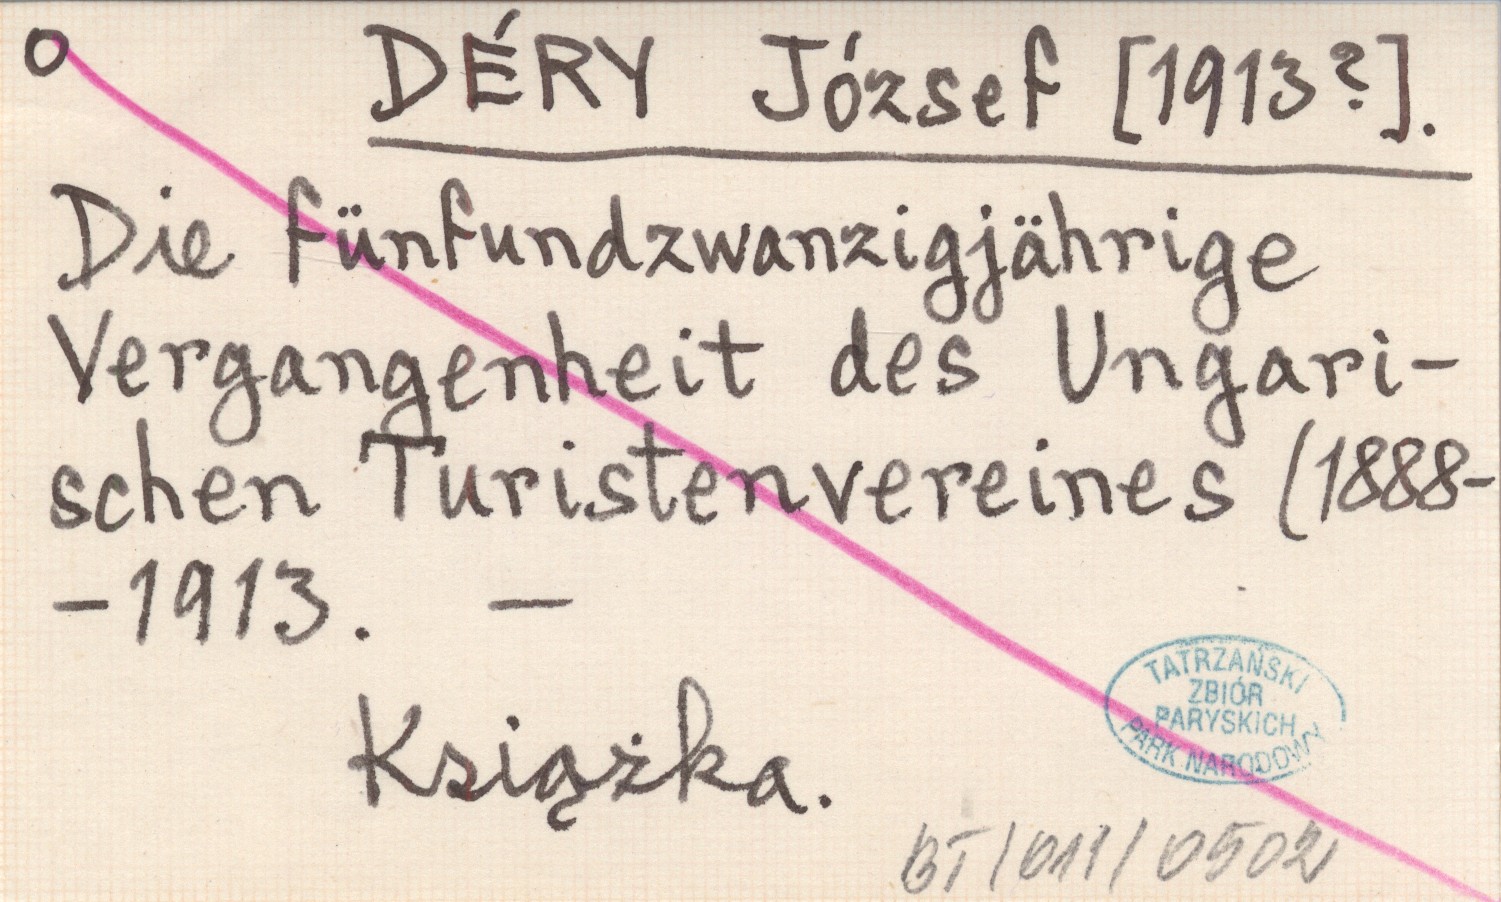 O DÉRY József [1913?].
Die fünfundzwanzigjährige
Vergangenheit des Ungari-
schen Turistenvereines (1888-
-1913. —
Książka.
TATRZAŃSKI
ZBIÓR
PARYSKICH
PARK NARODOWY
BT/011/0502